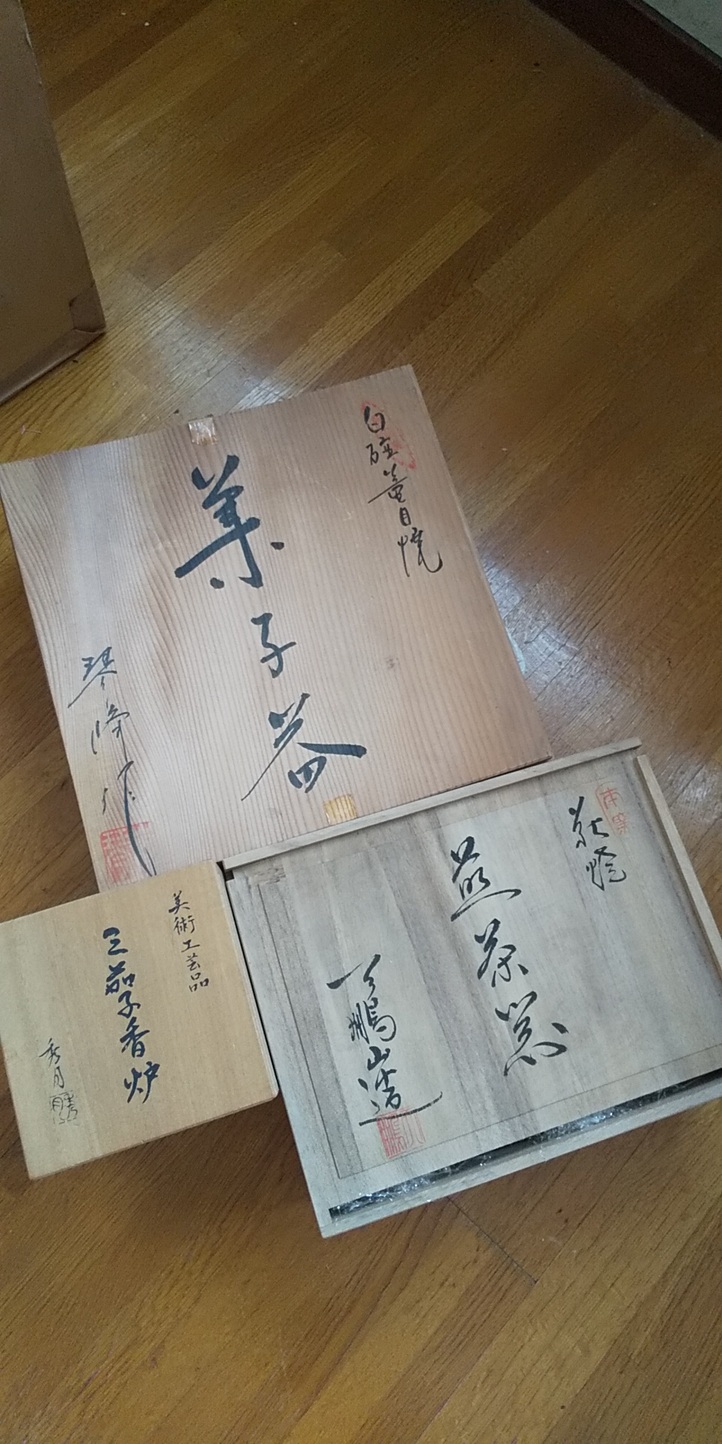 白磁簀目焼
菓子器
琴峰作
萩焼
煎茶器
美術工芸品
三茄子香炉
秀月